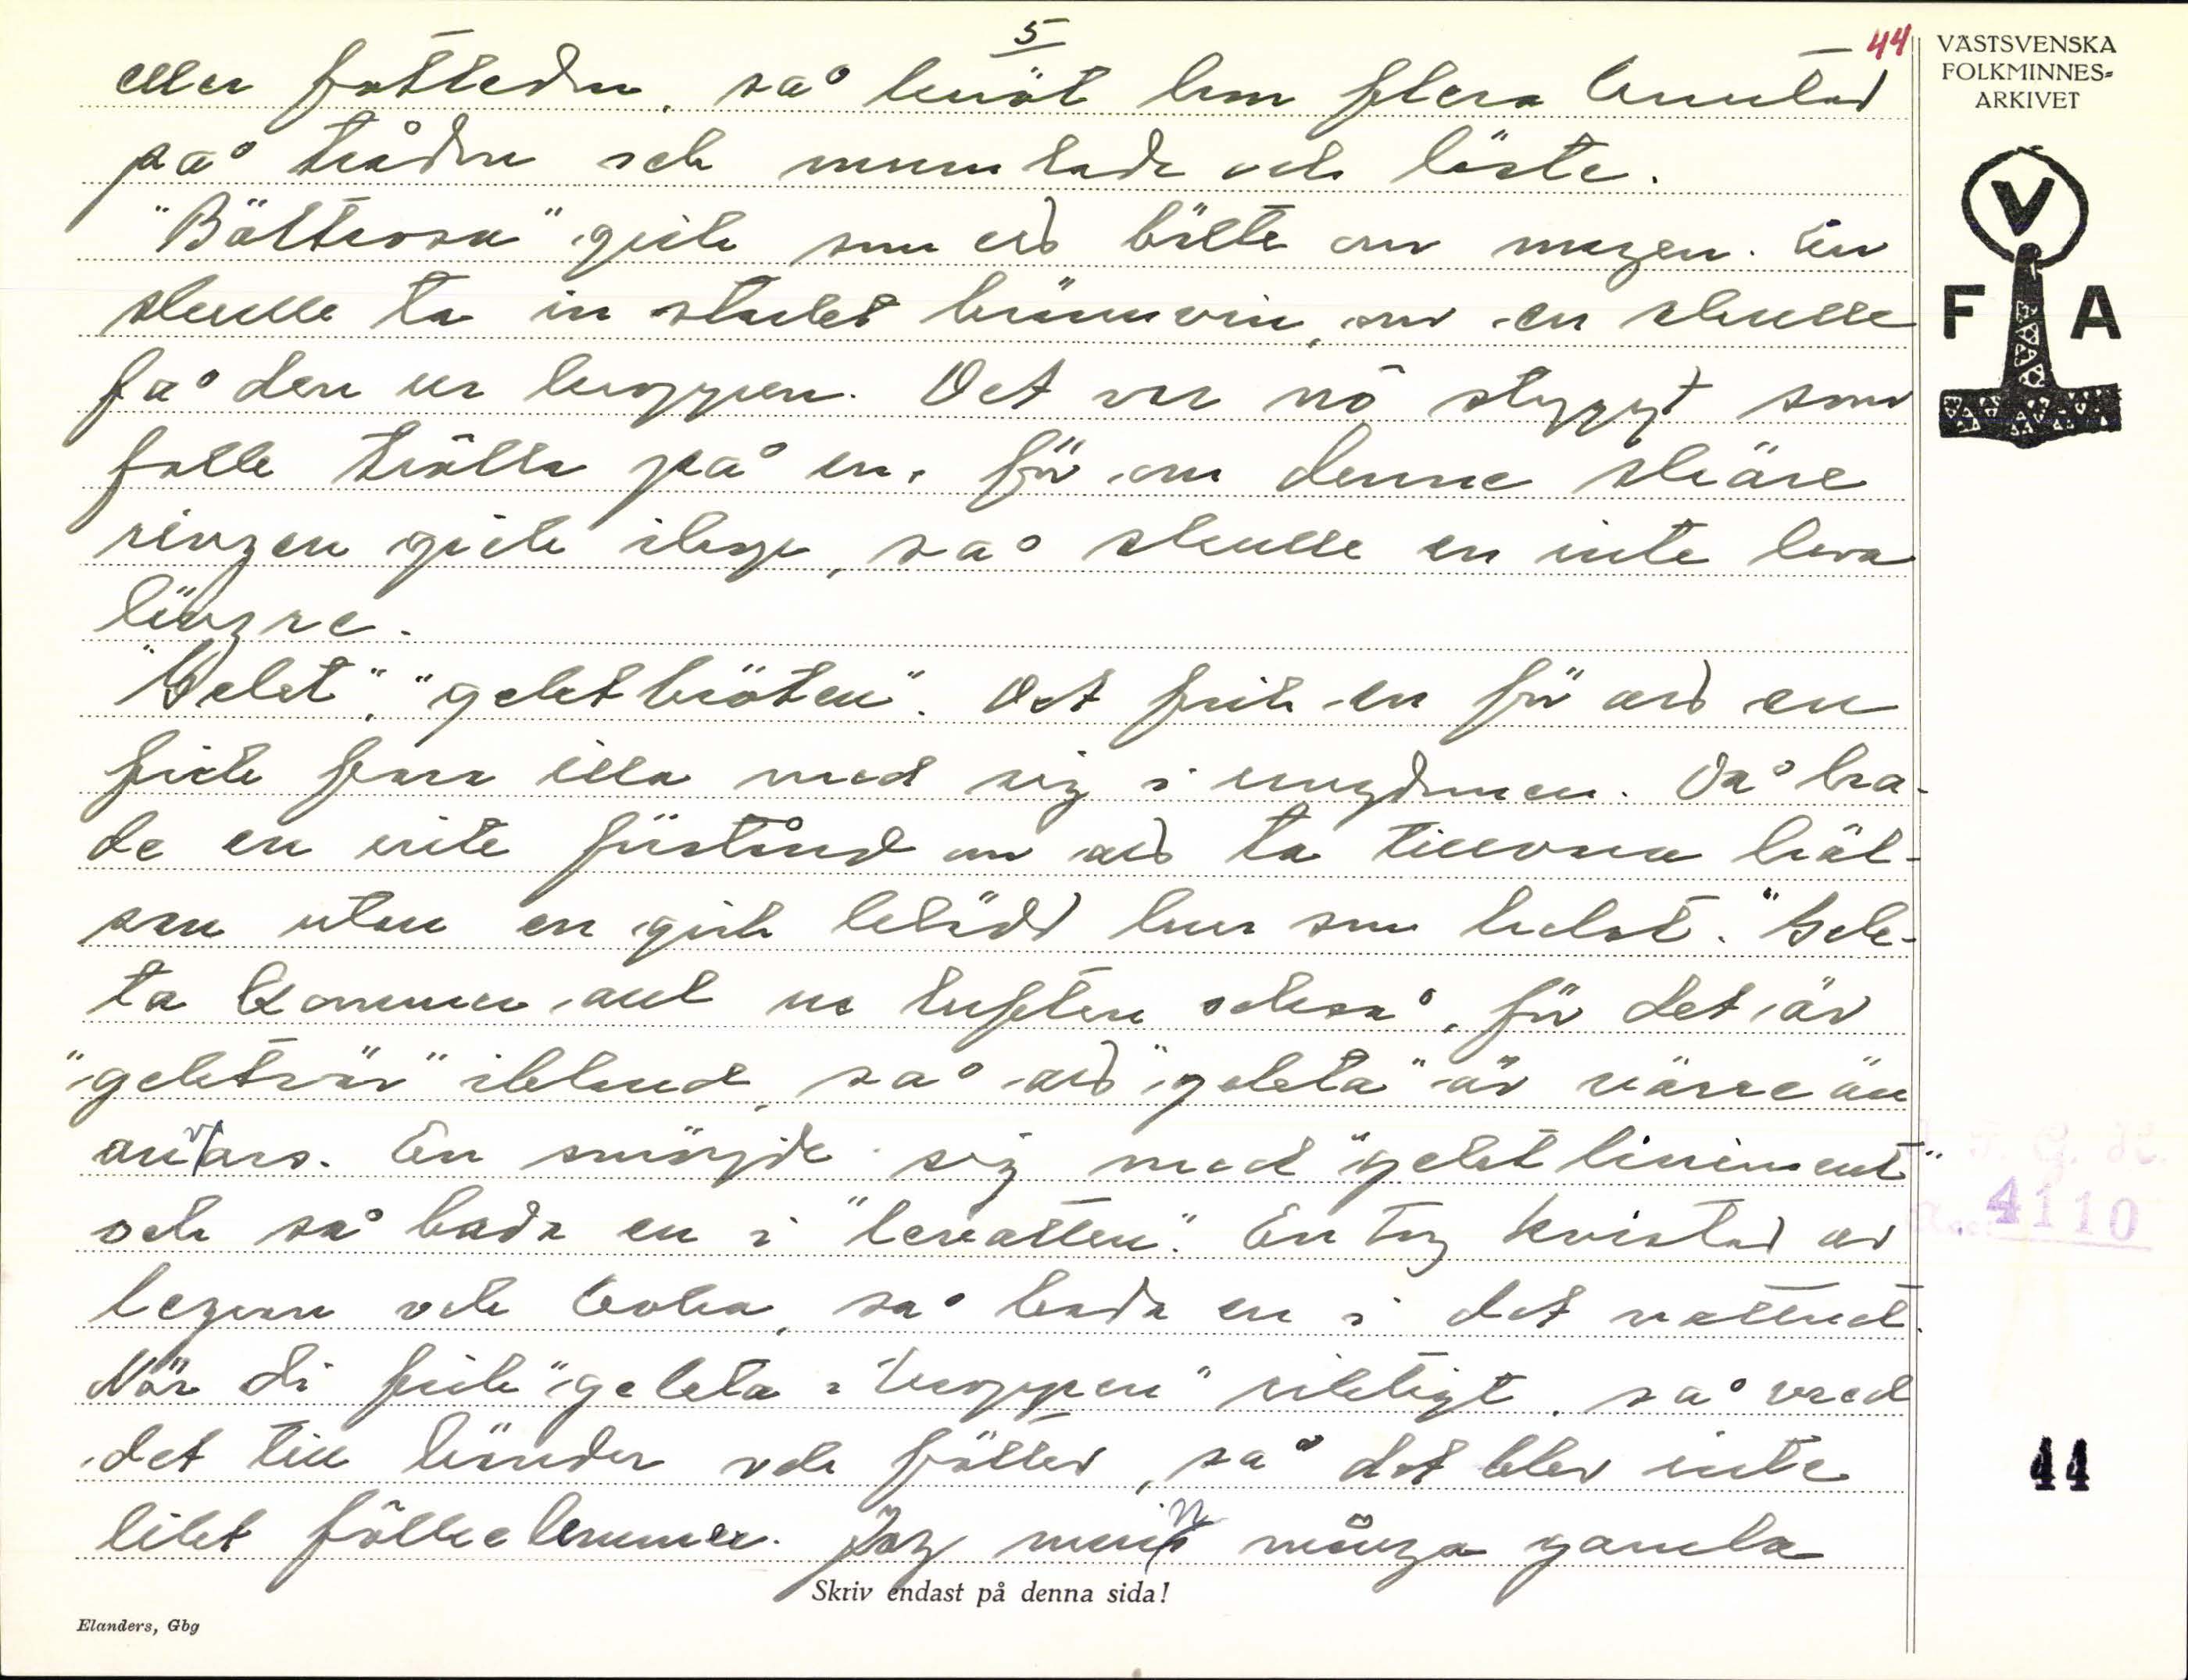 5
44
eller fotleden, så knöt hon flera knutar
på tråden och mumlade och läste.
"Bältrosen" gick som ett bälte om magen. En
skulle ta in starkt brännvin, om en skulle
få den ur kroppen. Det var nô styggt som
folk trôllt på en, för om denne skäre
ringen gick ihop, så skulle en inte leva
längre.
"Gekt", "gektbröten". Det fick en för att en
fick fara illa med sig i ungdomen. Då ha-
de en inte förstånd om att ta tillvara häl-
san utan en gick klädd hur som helst. "Gek-
ta kommer aul ur luften också, för det är
"gektvär" ibland, så att "gekta" är värre än
anvars. En smörjde sig med "gektliniment"
och så bada en i "levatten". En tog kvistar av
legran och koka, så bada en i det vattnet.
När di fick "gekta i kroppen" riktigt, så vred
det till händer och fötter, så det blev inte
likt fôlkelemmer. Jag minns många gamla
Skriv endast på denna sida!
Elanders, Gbg
VÄSTSVENSKA
FOLKMINNES=
ARKIVET
V
F A
4110
44